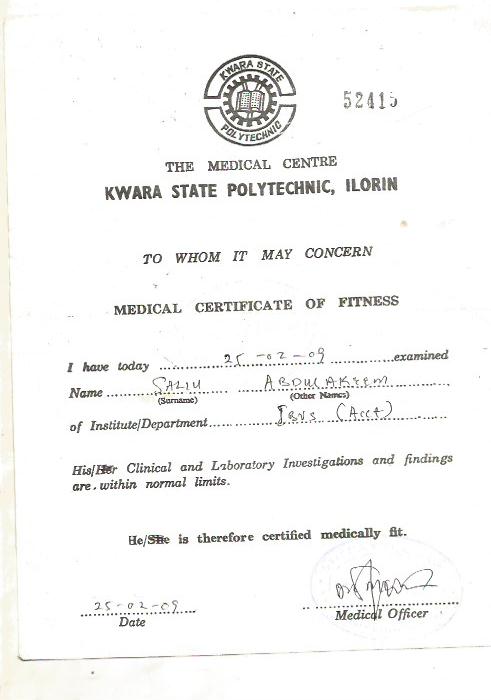 KWARA STATE
POLYTECHNIC
52415
THE MEDICAL CENTRE
KWARA STATE POLYTECHNIC, ILORIN
TO WHOM IT MAY CONCERN
MEDICAL CERTIFICATE OF FITNESS
I have today 25-02-09 examined
Name SALIU ABDULAKEEM
(Surname) (Other Names)
of Institute/Department IBVS (Acct)
His/Her Clinical and Laboratory Investigations and findings
are within normal limits.
He/She is therefore certified medically fit.
25-02-09
Date Medical Officer